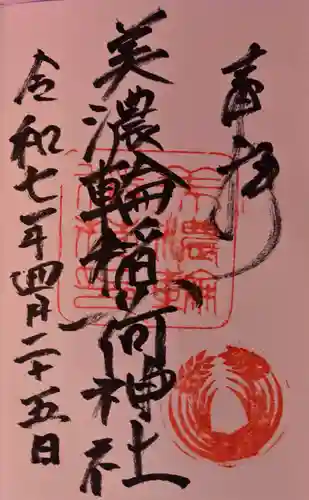 奉拝
美濃輪稲荷神社
令和七年四月二十五日